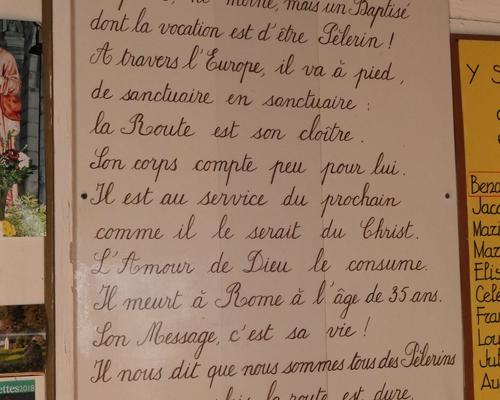 mais un Baptisé
dont la vocation est d'être Pèlerin !
A travers l'Europe, il va à pied,
de sanctuaire en sanctuaire :
la Route est son cloître.
Son corps compte peu pour lui.
Il est au service du prochain
comme il le serait du Christ.
L'Amour de Dieu le consume.
Il meurt à Rome à l'âge de 35 ans.
Son Message, c'est sa vie !
Il nous dit que nous sommes tous des Pèlerins
la route est dure,
Y S
Jac
Mazi
Maz
Elis
Cele
Fran
Lou
Jul
Au
ettes2018